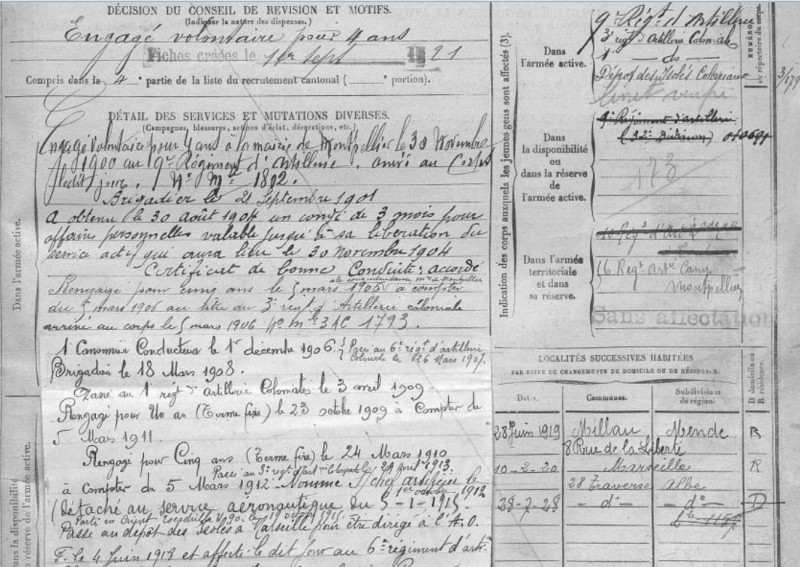 DÉCISION DU CONSEIL DE REVISION ET MOTIFS.
(Indiquer la nature des dispenses.)
Engagé volontaire pour 4 ans
Fiches créées le 1er Sept 1921
Compris dans la 4e partie de la liste du recrutement cantonal ( portion).
DÉTAIL DES SERVICES ET MUTATIONS DIVERSES.
(Campagnes, blessures, actions d'éclat, décorations, etc.)
Engagé volontaire pour 4 ans à la mairie de Montpellier le 30 Novembre
1900 au 9e Régiment d'Artillerie. arrivé au Corps
ledit jour. Nº Mle 1892.
Brigadier le 21 Septembre 1901
A obtenu le 30 août 1904 un congé de 3 mois pour
affaires personnelles valable jusqu'à sa libération du
service actif qui aura lieu le 30 novembre 1904
Certificat de bonne Conduite: accordé
Rengagé pour cinq ans le 5 mars 1906 à compter
du 5 mars 1906 au titre du 3e régt d'Artillerie coloniale
arrivé au corps le 5 mars 1906 Nº mle 3AC 1793.
1r Canonnier Conducteur le 1er décembre 1906 Passé au 6e régt d'artillerie
Coloniale le 26 Mars 1907.
Brigadier le 18 Mars 1908.
Passé au 1er régt Artillerie Coloniale le 3 avril 1909
Rengagé pour Un an (Terme fixe) le 23 octobre 1909 à Compter du
5 Mars 1911.
Rengagé pour Cinq ans (Terme fixe) le 24 Mars 1910
Passé au 3e régt d'art Coloniale le Avril 1913.
à compter du 5 Mars 1912 Nommé S/chef artificier le
1er octobre 1912
(détaché au service aéronautique du 5-1-1915.
Parti en Orient
Passé au dépôt des isolés à Marseille pour être dirigé à l'A.O.
F. le 4 Juin 1918 et affecté le dit jour au 6e régiment d'arti-
Dans l'armée active.
Dans la disponibilité
ou dans la réserve de l'armée active.
Indication des corps auxquels les jeunes gens sont affectés (3).
Dans
l'armée active.
9e Régt d'Artillerie
3e régt d'Artillerie Coloniale
1er do
Dépôt des Isolés Coloniaux
NUMÉROS
au répertoire du corps.
Dans
la disponibilité
ou
dans la réserve
de
l'armée active.
9e Régiment d'artillerie
178
Dans l'armée
territoriale et dans
sa réserve.
10 Régt d'
Montpellier
Sans affectation
LOCALITÉS SUCCESSIVES HABITÉES
PAR SUITE DE CHANGEMENTS DE DOMICILE OU DE RÉSIDENCE.
Dates. Communes. Subdivisions de région. D domicile ou R résidence.
28 Juin 1919 Millau Mende R
8 Rue de la Liberté
10-2-20 Marseille R
28 Traverse Albe
28-7-28 - do - do D